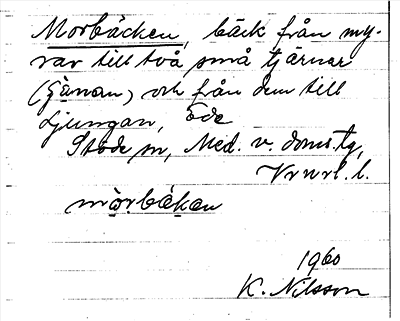 Morbäcken, bäck från my-
rar till två små tjärnar
(Tjärnan) och från dem till
Ljungan, öde
Stöde sn, Med. v. doms.tg,
Vrnrl. l.
mörbäkan
1960
K. Nilsson